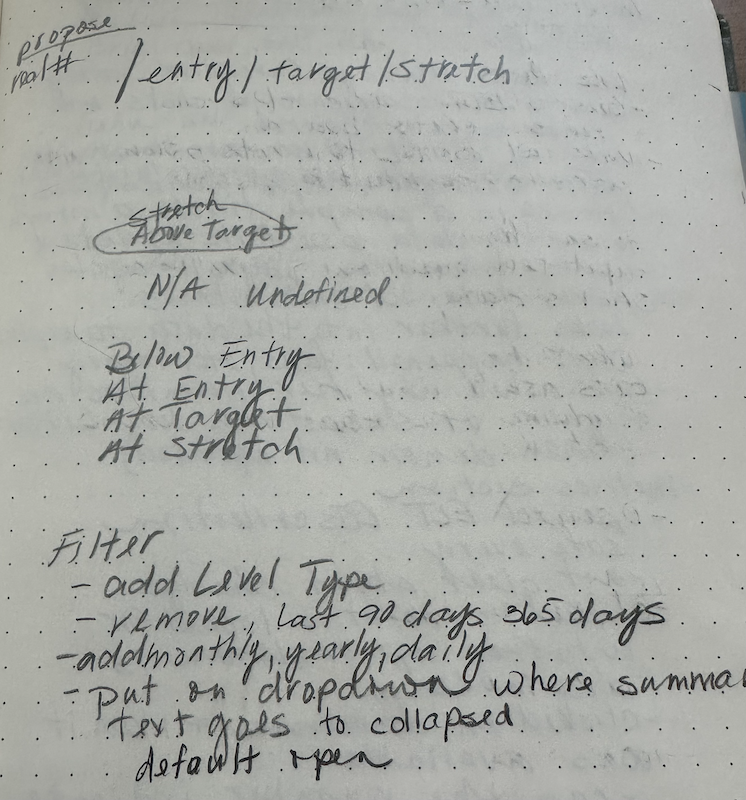 propose
real # /entry/target/stretch
stretch
Above Target
N/A Undefined
Below Entry
At Entry
At Target
At Stretch
Filter
- add Level Type
- remove, last 90 days 365 days
- add monthly, yearly, daily
- put on dropdown where summa
text goes to collapsed
default open